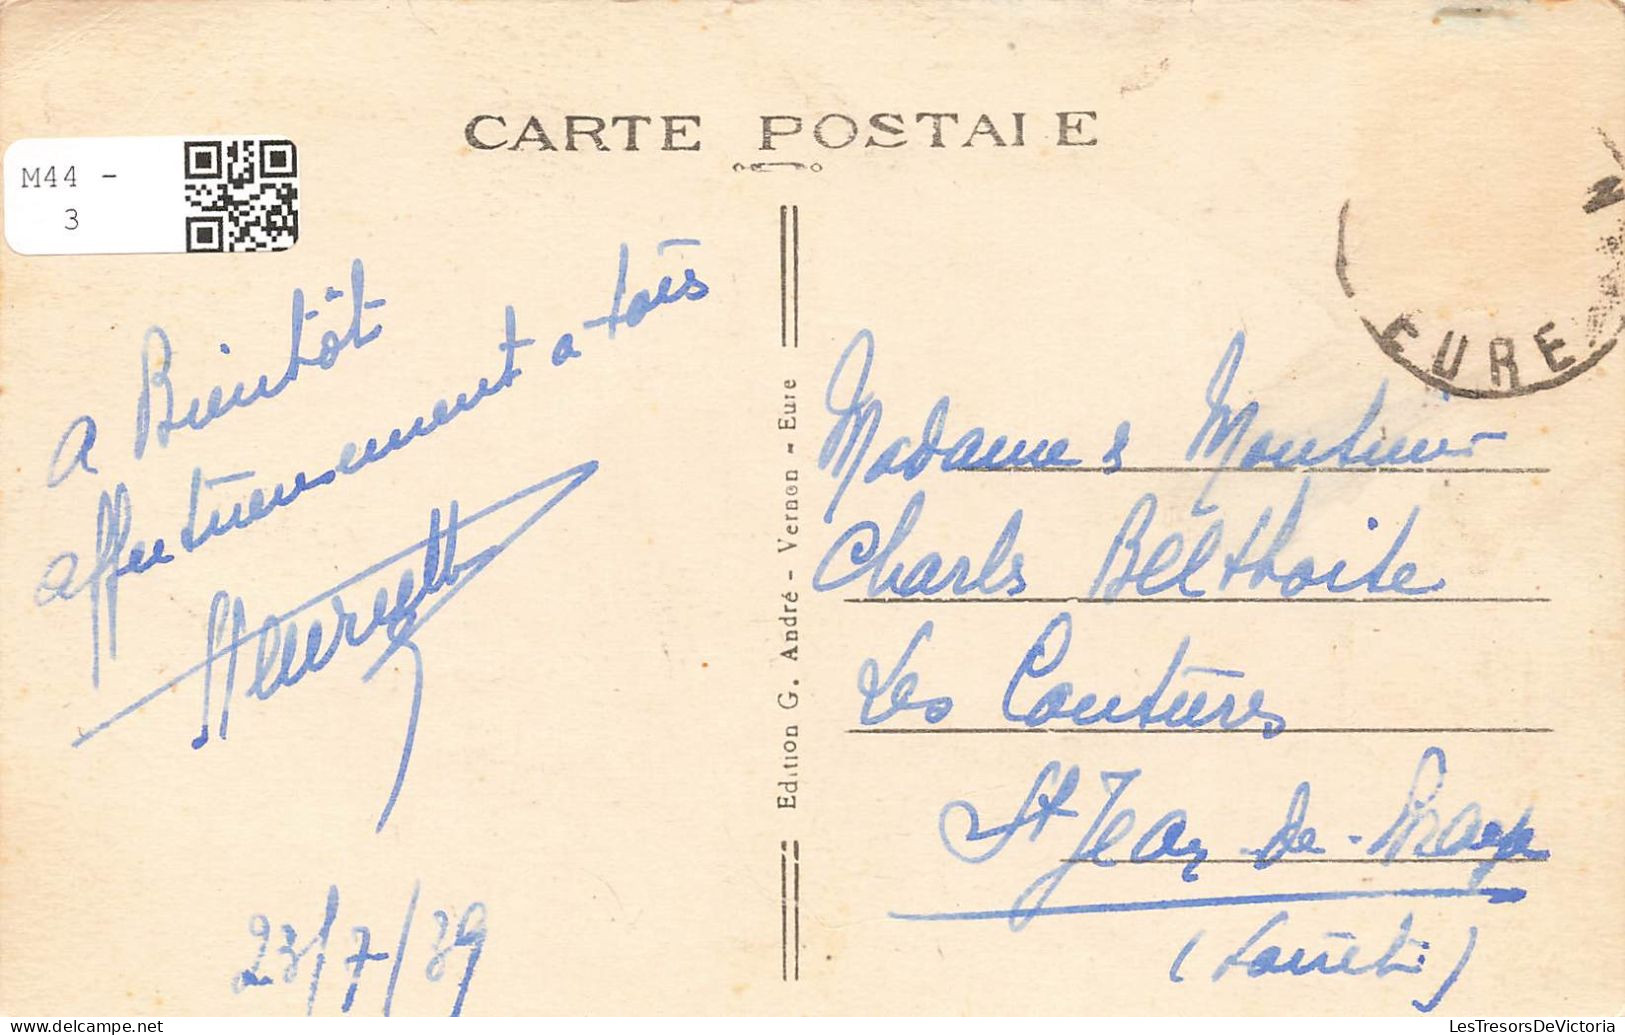 CARTE POSTALE
M44 -
3
a Bientôt
affectueusement a tois
Henryette
23/7/39
Edition G. André - Vernon - Eure
EURE
Madame & Monsieur
Charles Belthoise
Les Coutures
St Jean-de-Braye
(Loiret)
delcampe.net
LesTresorsDeVictoria